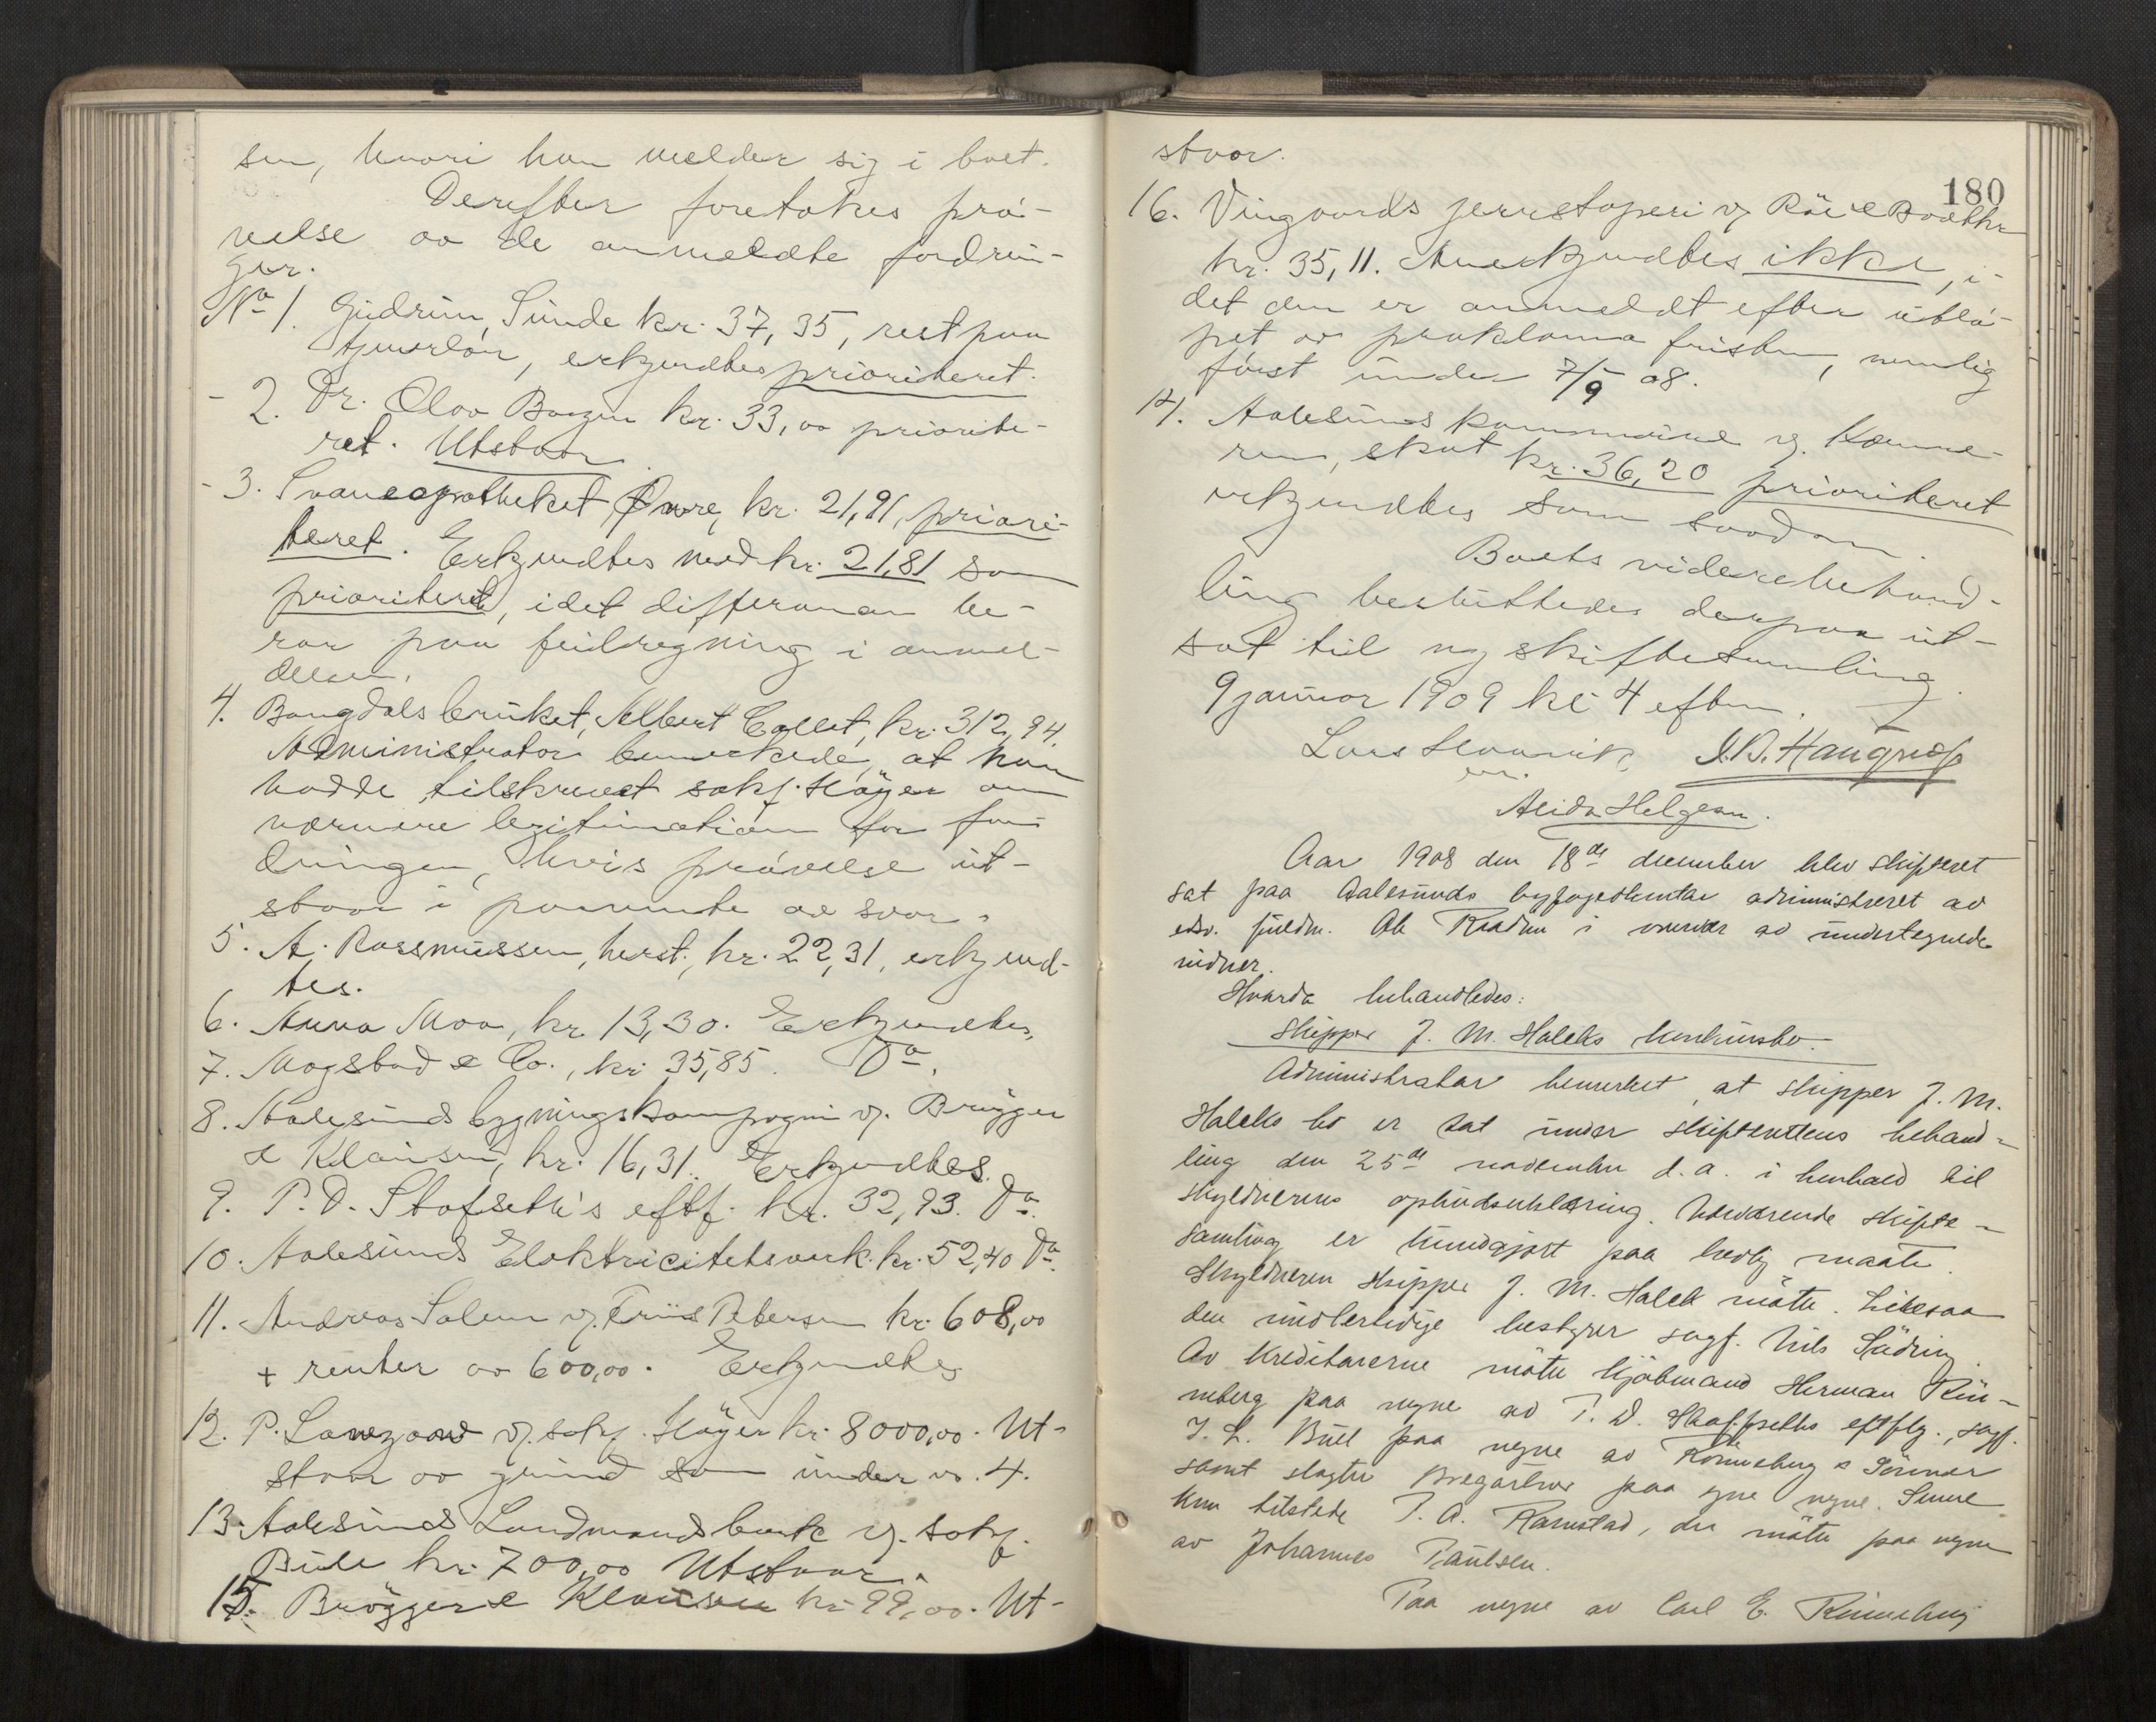 sen, hvori han melder sig i boet.
Derefter foretokes prø-
velse av de anmeldte fordrin-
ger.
No 1. Gudrun Sunde kr. 37,35, rest paa
tjenerløn, erkjendtes prioriteret.
- 2. Dr. Olav kr. 33,00 priorite-
ret. Utstaar.
- 3. Svaneapotheket, Øwre, kr. 21,91, priori-
teret. Erkjendtes med kr. 21,81 som
prioriteret, idet differansen be-
ror paa feilregning i anmel-
delsen.
4. Bangdalsbruket, Albert Collet, kr. 312,94.
Administrator bemerkede, at han
hadde tilskrevet sakf. Høyer om
nærmere legitimation for for-
dringen, hvis prøvelse ut-
staar i paavente av svar.
5. A. Rassmussen, herst., kr. 22,31, erkjend-
tes.
6. Anna Moa, kr. 13,30. Erkjendtes.
7. Mogstad & Co., kr. 35,85. Do.
8. Aalesunds bygningskompagni v. Brøgger
& Klausen, kr. 16,31. Erkjendtes.
9. P. D. Stafseth's eftf. kr. 32,93. Do.
10. Aalesunds Elektricitetsverk. kr. 52,40 Do.
11. Andreas Salem v. Friis Petersen kr. 608,00
+ renter av 600,00. Erkjendtes
12. P. v. sakf. Høyer kr. 8000,00. Ut-
staar av grund som under no. 4.
13. Aalesunds Landmandsbank v. sakf.
Bull kr. 700,00 Utstaar.
15. Brøgger & Klausen kr. 99,00. Ut-
staar.
180
16. Vingaards jernstøperi v.
kr. 35,11. Anerkjendtes ikke, i-
det den er anmeldt efter utlø-
pet av proklama fristen, nemlig
først under 7/9 08.
17. Aalesunds kommune v. Kæmne-
ren, skat kr. 36,20 prioriteret
erkjendtes som saadan.
Boets videre behand-
ling besluttedes derpaa ut-
sat til ny skiftesamling
9 januar 1909 kl 4 eftm.
Lars
Alida Helgesen.
Aar 1908 den 18de december blev skifteret
sat paa Aalesunds byfogedkontor administreret av
edsv. fuldm. Ole i nærvær av undertegnede
vidner.
Hvorda behandledes:
Skipper J. M. Haleks konkursbo.
Administrator bemerket, at skipper J. M.
Haleks bo er tat under skifterettens behand-
ling den 25de november d. a. i henhold til
skyldnerens opbudserklæring. Nærværende skifte-
samling er kundgjort paa lovlig maate.
Skyldneren skipper J. M. Halek møtte. Likesaa
den midlertidige bestyrer sagf. Nils
Av kreditorerne møtte kjøbmand Herman Rön-
neberg paa vegne av P. D. Staffseths eftflg., sagf.
J. L. Bull paa vegne av Rönneberg & Sönner
samt slagter paa egne vegne. Senere
kom tilstede P. A. Ramstad, der møtte paa vegne
av Johannes Paulsen.
Paa vegne av Carl E. Rönneberg